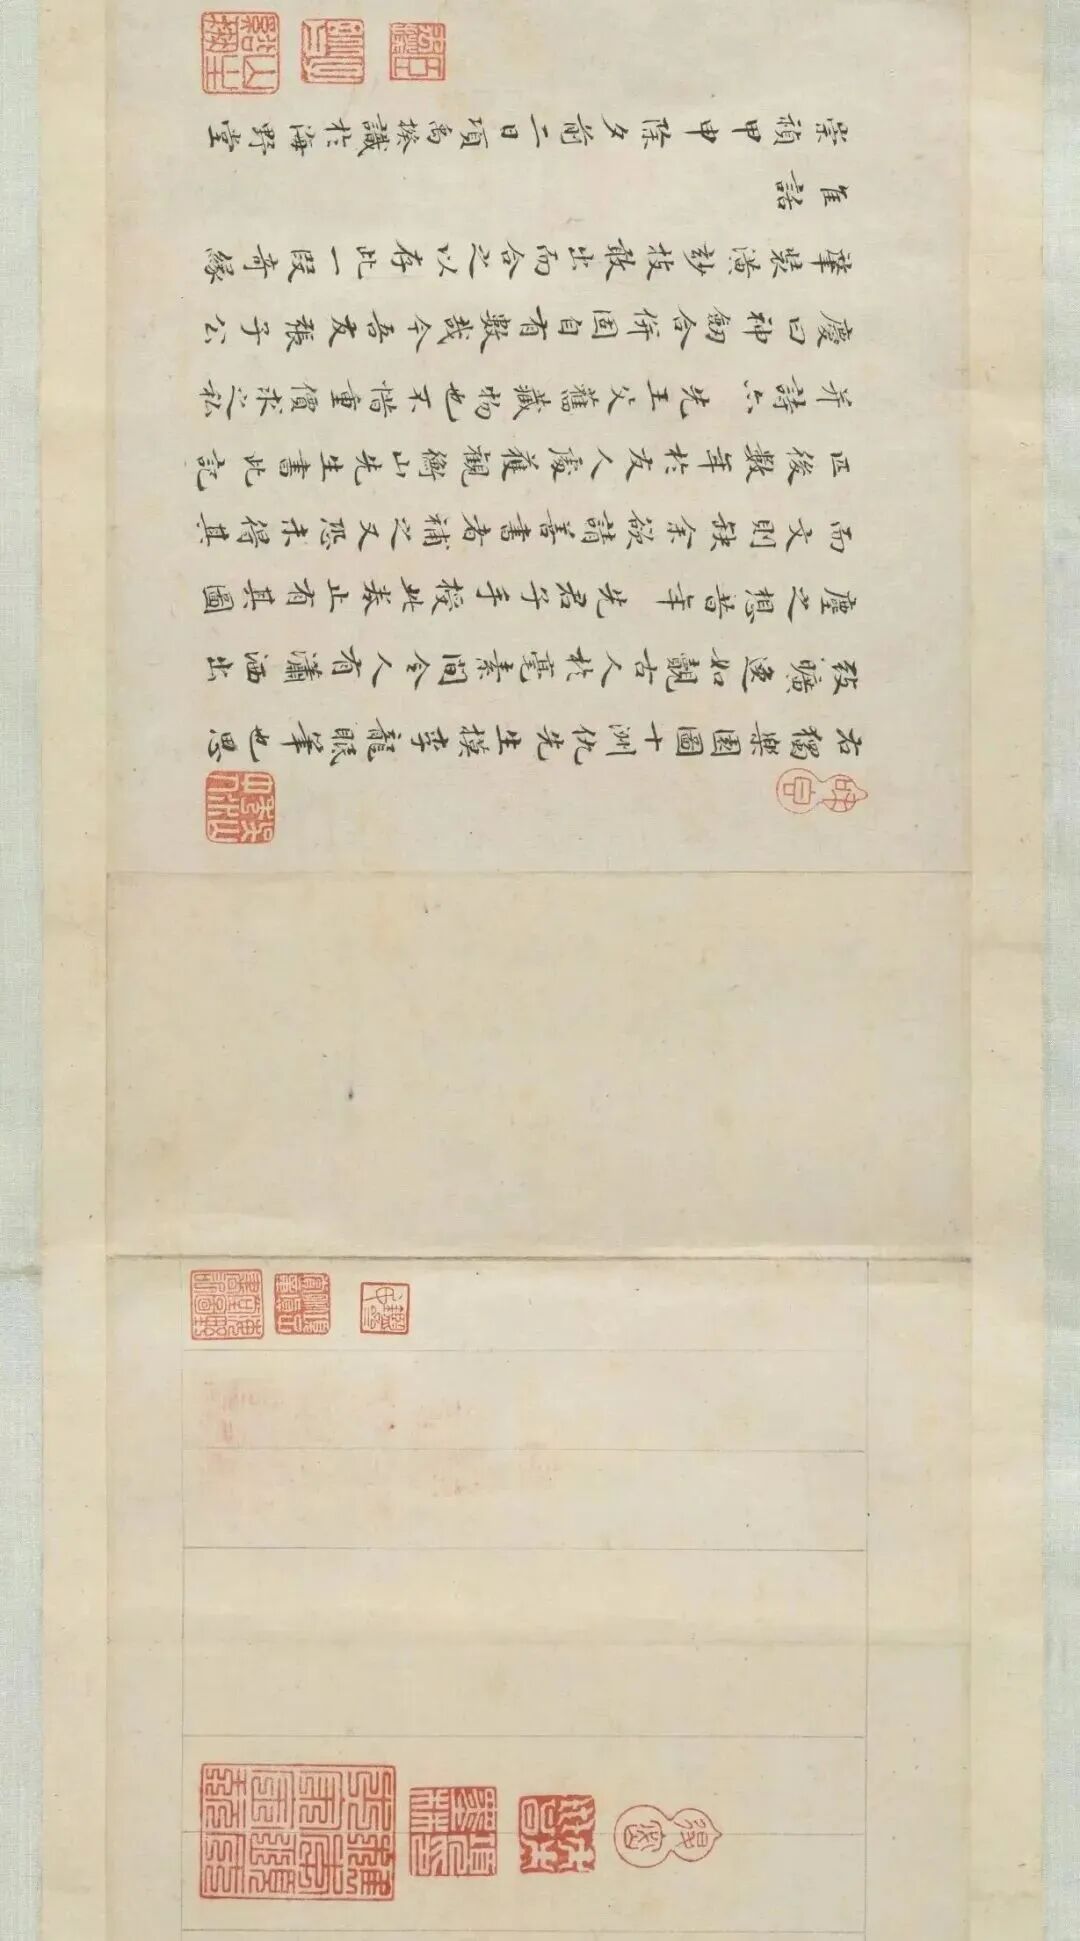 右獨樂園圖十洲仇先生模李龍眠筆也思
致曠逸如覩古人於毫素間令人有瀟洒出
塵之想昔年先君子手授此卷止有其圖
而文則缺余欲請善書者補之又恐未得其
匹後數年於友人處獲觀衡山先生書此記
并詩六先王父舊藏物也不惜重價求之私
慶曰神劒合併固自有數哉今吾友張子公
肇裝潢玅技敢出而合之以存此一段奇緣
佳話
崇禎甲申除夕前二日項禹揆識於海野堂